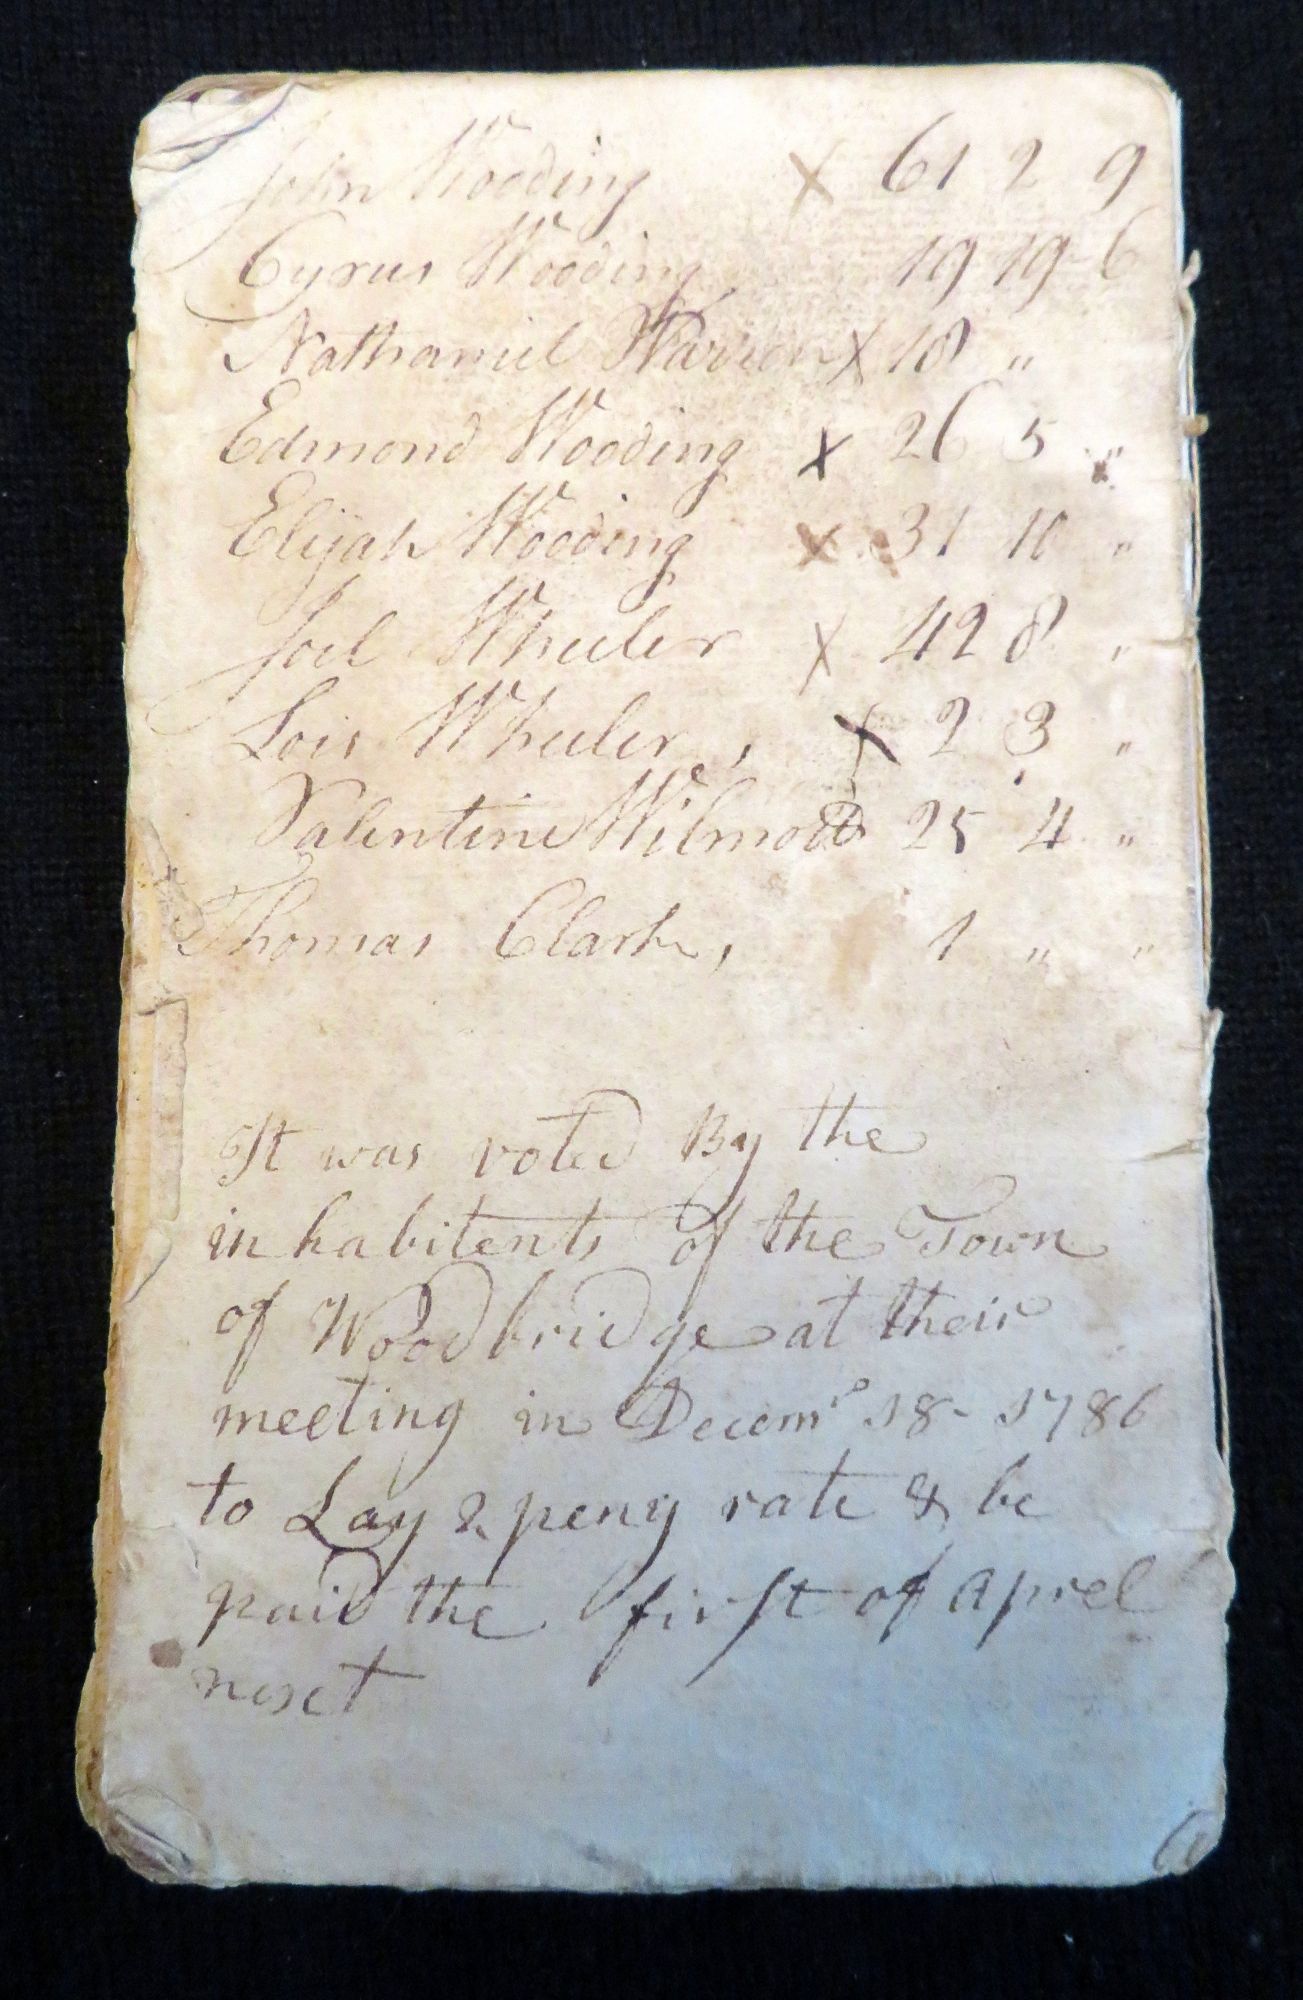 John Wooding × 61 2 9
Cyrus Wooding 19 19 6
Nathaniel Warren × 18 "
Edmond Wooding × 26 5 "
Elijah Wooding × 31 10 "
Joel Wheeler × 42 8 "
Lois Wheeler, × 2 3 "
Valentine Wilmott 25 4 "
Thomas Clark, 1 " "
It was voted By the
inhabitents of the Town
of Woodbridge at their
meeting in Decemr 18- 1786
to Lay 2 peny rate & be
paid the first of aprel
next